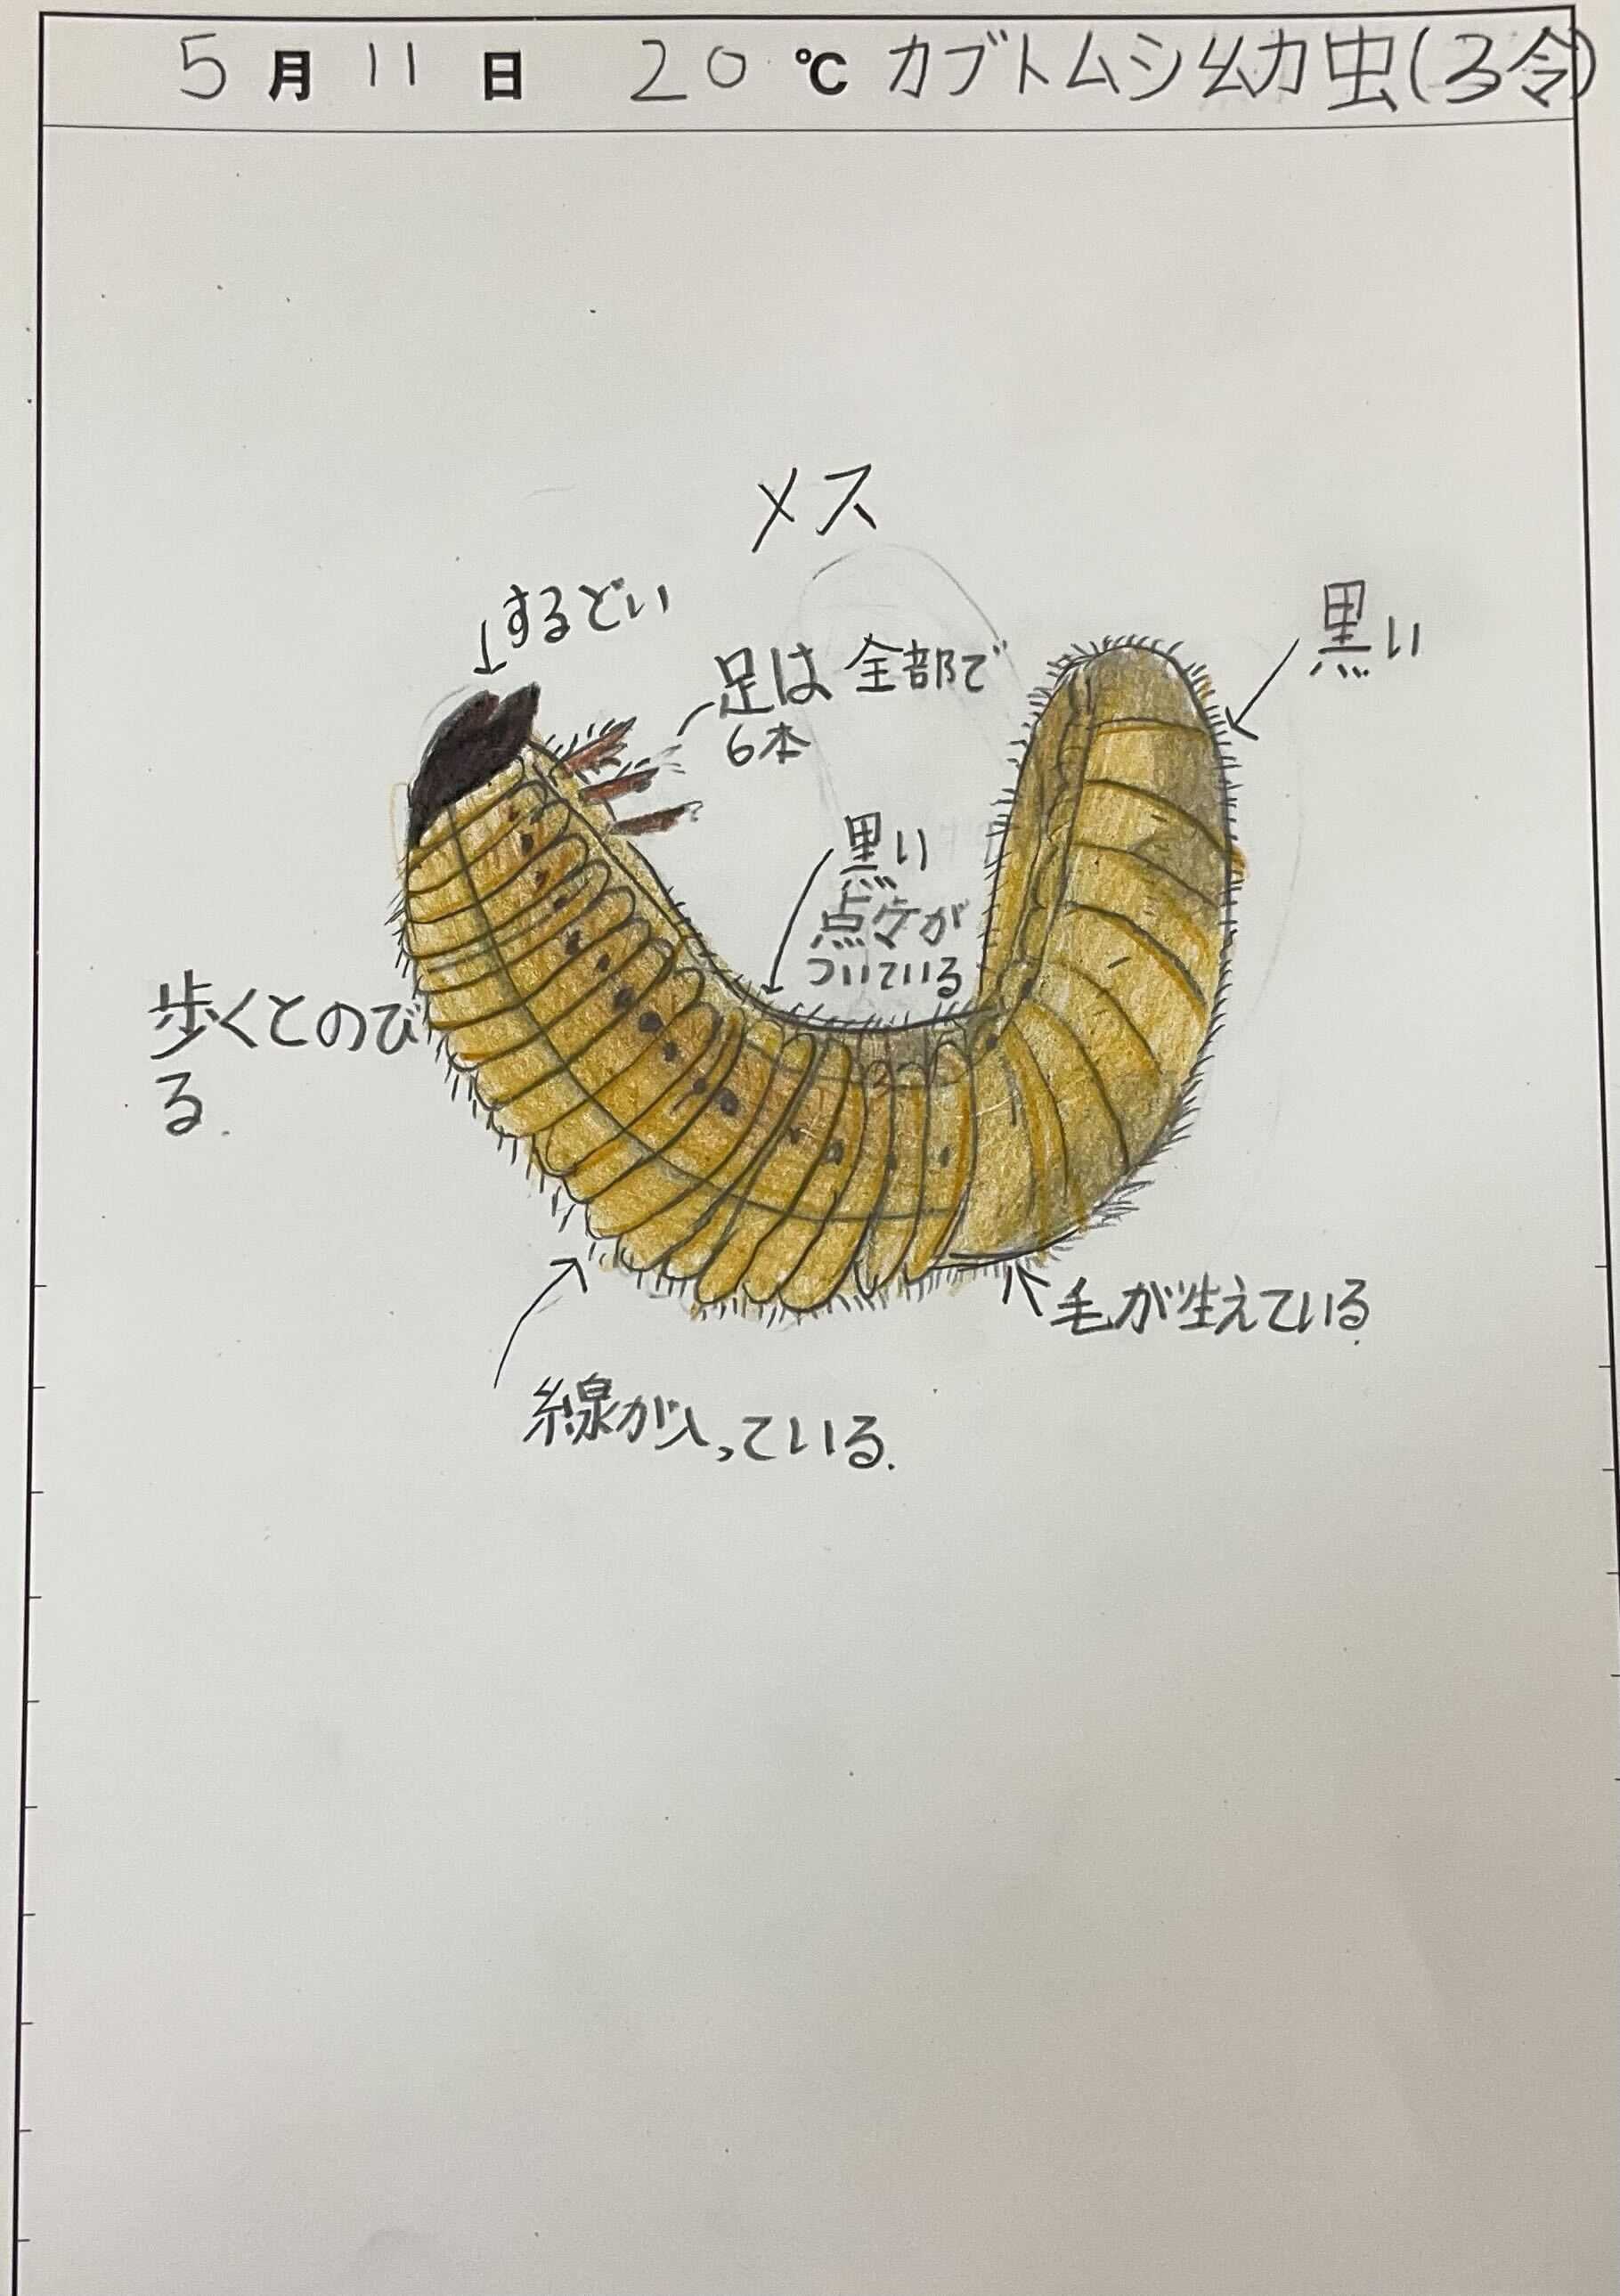 5月11日 20℃ カブトムシ幼虫(3令)
メス
するどい
足は全部で
6本
黒い
黒い
点々が
ついている
歩くとのび
る.
毛が生えている.
線が入っている.